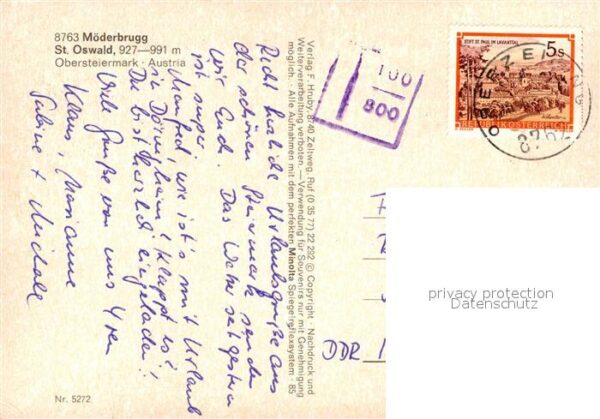 8763 Möderbrugg
St. Oswald, 927—991 m
Obersteiermark · Austria
Recht herzliche Urlaubsgrüße aus
der schönen Steiermark senden
wir Euch. Das Wetter seit gestern
ist super.
Manfred, wie ist's mit Urlaub
in Dörnthein? Klappt es?
Du bist herzlich eingeladen!
Viele Grüße von uns 4ren
Klaus, Marianne
Sabine + Michael
Nr. 5272
Verlag F. Hruby, 8740 Zeltweg, Ruf (0 35 77) 22 282 © Copyright · Nachdruck und
Weiterverarbeitung verboten. — Verwendung für Souvenirs nur mit Genehmigung
möglich. · Alle Aufnahmen mit dem perfekten Minolta Spiegelreflexsystem · 85
100
800
STIFT ST. PAUL IM LAVANTTAL
5s
REPUBLIK ÖSTERREICH
OBERZEI
8762
DDR
privacy protection
Datenschutz